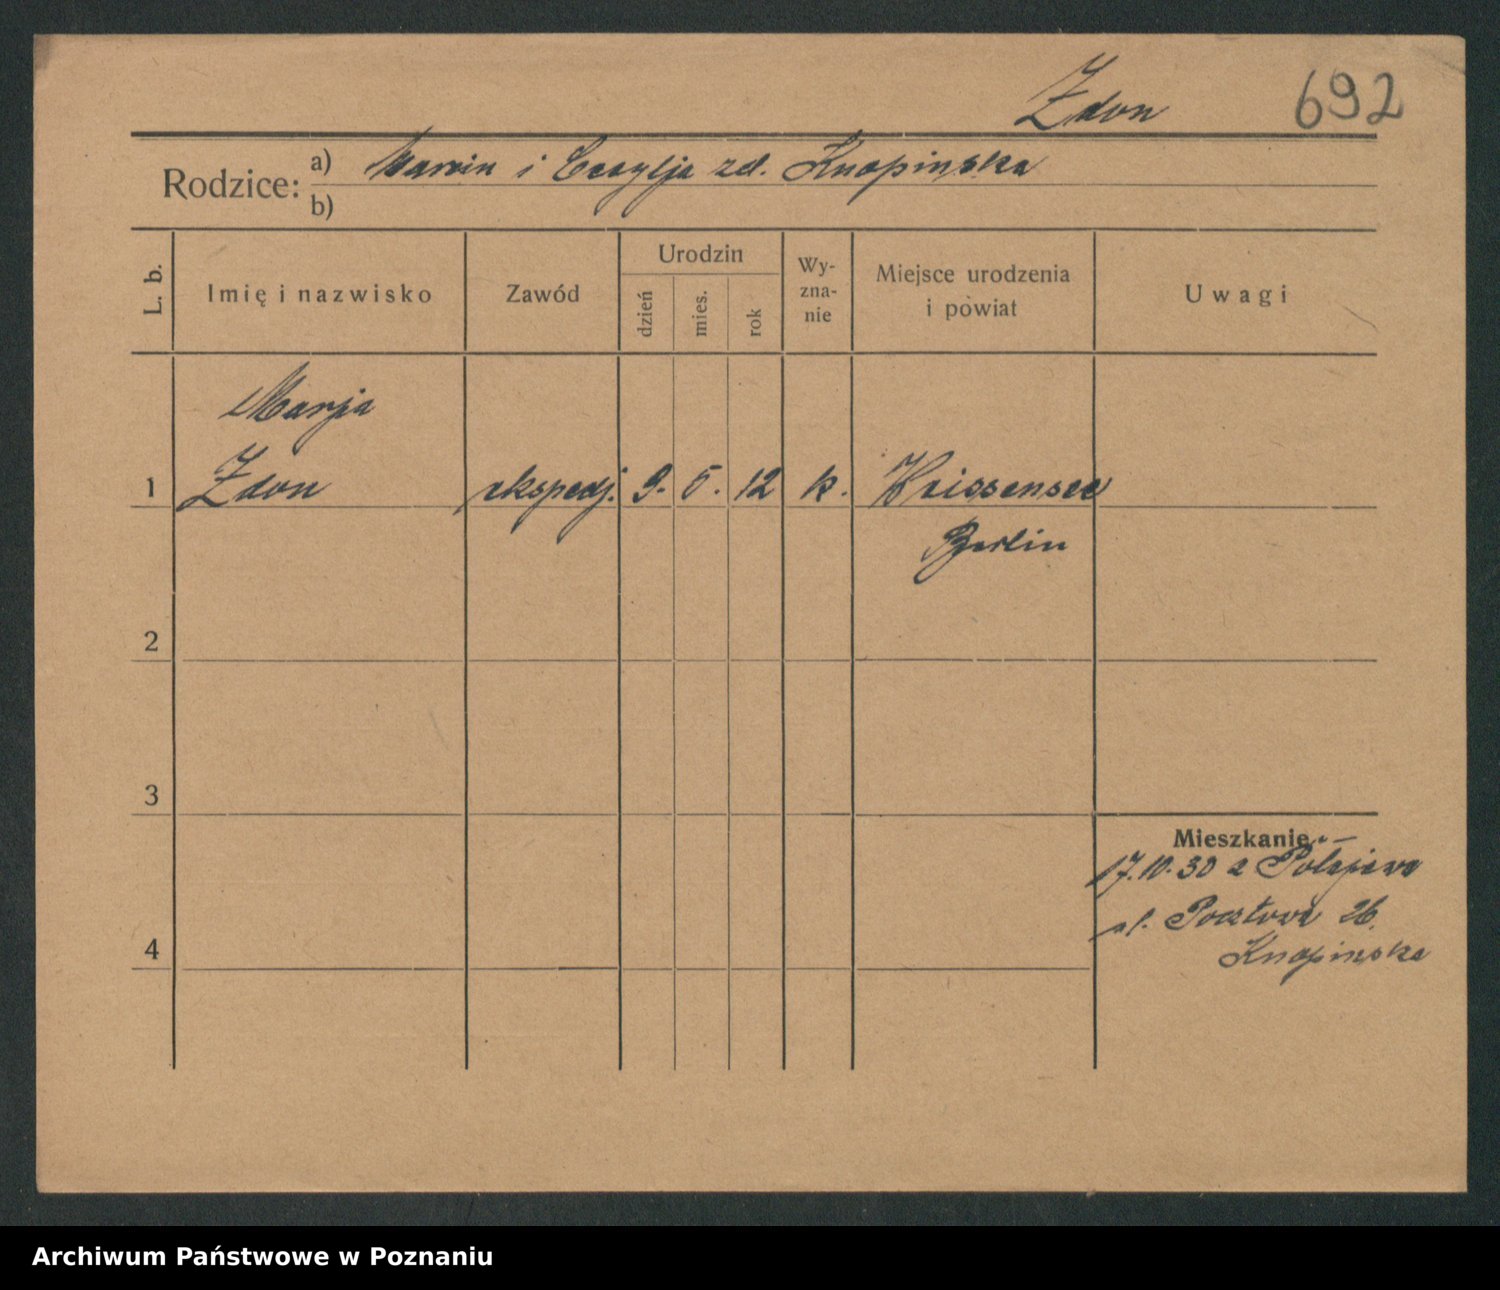 Zdon 692
Rodzice: a) Marcin i Cecylja zd. Knopinska
b)
L. b. Imię i nazwisko Zawód Urodzin dzień mies. rok Wy-zna-nie Miejsce urodzenia i powiat Uwagi
Marja
1 Zdon ekspedj. 9. 5. 12 k. Weissensee
Berlin
2
3
Mieszkanie
17.10.30 z Połajewa
ul. Pocztowa 26.
4 Knopinska
Archiwum Państwowe w Poznaniu